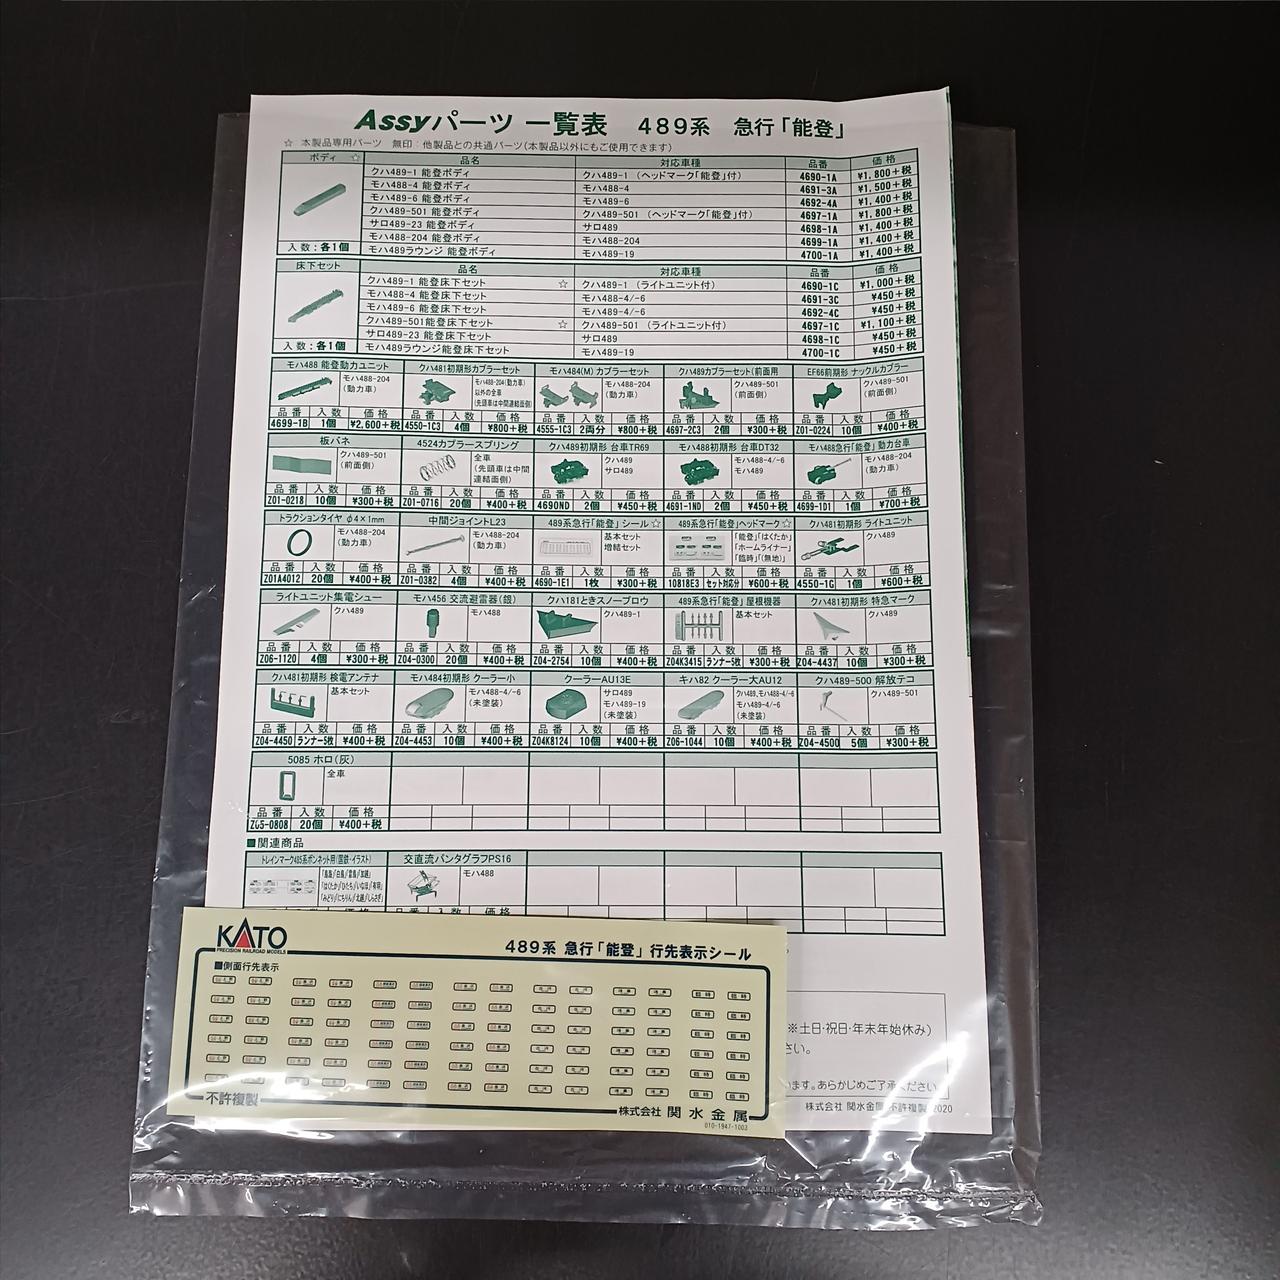 Assyパーツ 一覧表 489系 急行「能登」
☆ 本製品専用パーツ 無印：他製品との共通パーツ(本製品以外にもご使用できます)
ボディ ☆ 品名 対応車種 品番 価格
クハ489-1 能登ボディ クハ489-1 (ヘッドマーク「能登」付) 4690-1A ¥1,800+税
モハ488-4 能登ボディ モハ488-4 4691-3A ¥1,500+税
モハ489-6 能登ボディ モハ489-6 4692-4A ¥1,400+税
クハ489-501 能登ボディ クハ489-501 (ヘッドマーク「能登」付) 4697-1A ¥1,800+税
サロ489-23 能登ボディ サロ489 4698-1A ¥1,400+税
モハ488-204 能登ボディ モハ488-204 4699-1A ¥1,400+税
入数：各1個 モハ489ラウンジ 能登ボディ モハ489-19 4700-1A ¥1,400+税
床下セット 品名 対応車種 品番 価格
クハ489-1 能登床下セット ☆ クハ489-1 (ライトユニット付) 4690-1C ¥1,000+税
モハ488-4 能登床下セット モハ488-4/-6 4691-3C ¥450+税
モハ489-6 能登床下セット モハ489-4/-6 4692-4C ¥450+税
クハ489-501能登床下セット ☆ クハ489-501 (ライトユニット付) 4697-1C ¥1,100+税
サロ489-23 能登床下セット サロ489 4698-1C ¥450+税
入数：各1個 モハ489ラウンジ能登床下セット モハ489-19 4700-1C ¥450+税
モハ488 能登動力ユニット クハ481初期形カプラーセット モハ484(M) カプラーセット クハ489カプラーセット(前面用 EF66前期形 ナックルカプラー
モハ488-204 モハ488-204(動力車) モハ488-204 クハ489-501 クハ489-501
(動力車) 以外の全車 (動力車) (前面側) (前面側)
(先頭車は中間連結面側)
品番 入数 価格 品番 入数 価格 品番 入数 価格 品番 入数 価格 品番 入数 価格
4699-1B 1個 ¥2,600+税 4550-1C3 4個 ¥800+税 4555-1C3 2両分 ¥800+税 4697-2C3 2個 ¥300+税 Z01-0224 10個 ¥400+税
板バネ 4524カプラースプリング クハ489初期形 台車TR69 モハ488初期形 台車DT32 モハ488急行「能登」動力台車
クハ489-501 全車 クハ489 モハ488-4/-6 モハ488-204
(前面側) (先頭車は中間 サロ489 モハ489 (動力車)
連結面側)
品番 入数 価格 品番 入数 価格 品番 入数 価格 品番 入数 価格 品番 入数 価格
Z01-0218 10個 ¥300+税 Z01-0716 20個 ¥400+税 4690ND 2個 ¥450+税 4691-1ND 2個 ¥450+税 4699-1D1 1個 ¥700+税
トラクションタイヤ φ4×1mm 中間ジョイントL23 489系急行「能登」シール☆ 489系急行「能登」ヘッドマーク☆ クハ481初期形 ライトユニット
モハ488-204 モハ488-204 基本セット 「能登」「はくたか」 クハ489
(動力車) (動力車) 増結セット 「ホームライナー」
「臨時」「(無地)」
品番 入数 価格 品番 入数 価格 品番 入数 価格 品番 入数 価格 品番 入数 価格
Z01A4012 20個 ¥400+税 Z01-0382 4個 ¥400+税 4690-1E1 1枚 ¥300+税 10818E3 セット対応分 ¥600+税 4550-1G 1個 ¥600+税
ライトユニット集電シュー モハ456 交流避雷器(銀) クハ181ときスノープロウ 489系急行「能登」屋根機器 クハ481初期形 特急マーク
クハ489 モハ488 クハ489-1 基本セット クハ489
品番 入数 価格 品番 入数 価格 品番 入数 価格 品番 入数 価格 品番 入数 価格
Z06-1120 4個 ¥300+税 Z04-0300 20個 ¥400+税 Z04-2754 10個 ¥400+税 Z04K3415 ランナー5枚 ¥300+税 Z04-4437 10個 ¥300+税
クハ481初期形 検電アンテナ モハ484初期形 クーラー小 クーラーAU13E キハ82 クーラー大AU12 クハ489-500 解放テコ
基本セット モハ488-4/-6 サロ489 クハ489,モハ488-4/-6 クハ489-501
(未塗装) モハ489-19 モハ489-4/-6
(未塗装) (未塗装)
品番 入数 価格 品番 入数 価格 品番 入数 価格 品番 入数 価格 品番 入数 価格
Z04-4450 ランナー5枚 ¥400+税 Z04-4453 10個 ¥400+税 Z04K8124 10個 ¥400+税 Z06-1044 10個 ¥400+税 Z04-4500 5個 ¥300+税
5085 ホロ(灰)
全車
品番 入数 価格
Z05-0808 20個 ¥400+税
■関連商品
トレインマーク485系ボンネット用(国鉄・イラスト) 交直流パンタグラフPS16
モハ488
「はくたか」「ひたち」「いなほ」「有明」
「みどり」「にちりん」「北越」「しらさぎ」
品番 入数 価格
KATO
PRECISION RAILROAD MODELS
489系 急行「能登」 行先表示シール
■側面行先表示
臨時 臨時
臨時 臨時
臨時 臨時
臨時 臨時
臨時 臨時
臨時 臨時
不許複製
株式会社 関水金属
010-1947-1003
※土日・祝日・年末年始休み)
さい。
います。あらかじめご了承ください。
株式会社 関水金属 不許複製 2020